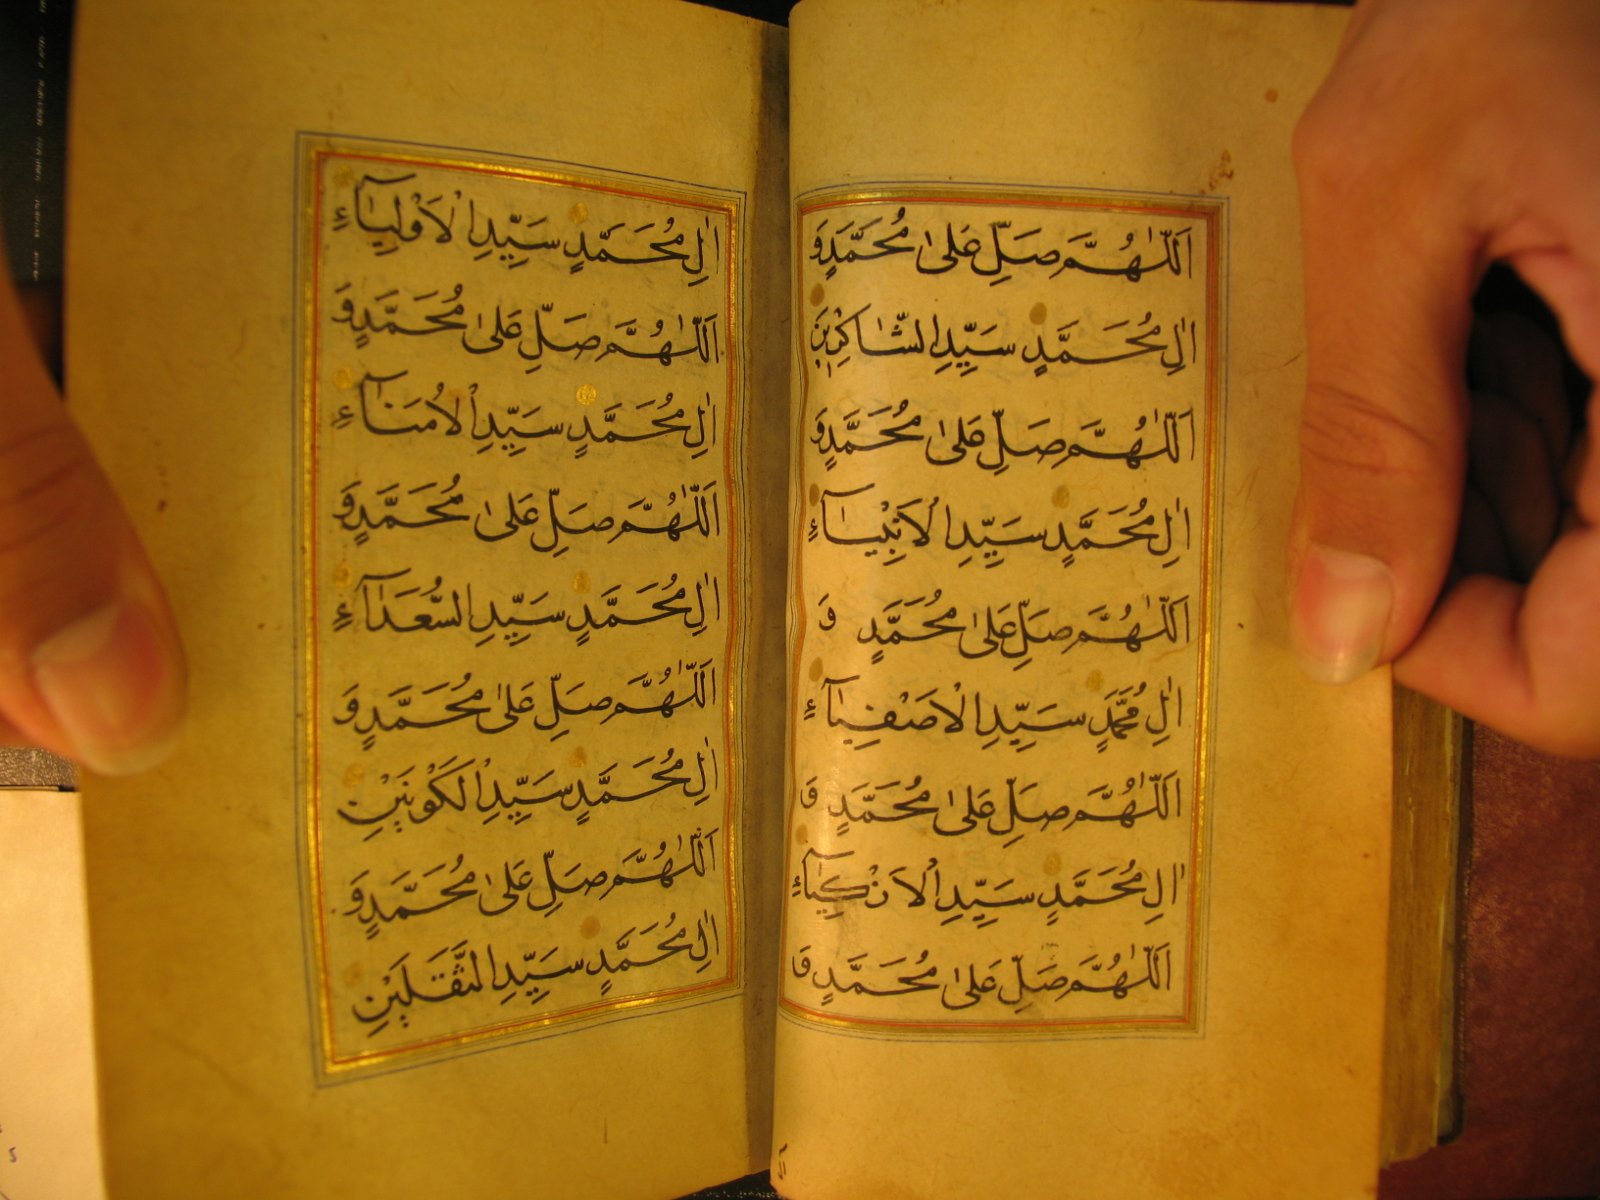 اَللّٰهُمَّ صَلِّ عَلىٰ مُحَمَّدٍ وَ
اٰلِ مُحَمَّدٍ سَيِّدِ الشّٰاكِرِينَ
اَللّٰهُمَّ صَلِّ عَلىٰ مُحَمَّدٍ وَ
اٰلِ مُحَمَّدٍ سَيِّدِ الْاَنْبِيٰآءِ
اَللّٰهُمَّ صَلِّ عَلىٰ مُحَمَّدٍ وَ
اٰلِ مُحَمَّدٍ سَيِّدِ الْاَصْفِيٰآءِ
اَللّٰهُمَّ صَلِّ عَلىٰ مُحَمَّدٍ وَ
اٰلِ مُحَمَّدٍ سَيِّدِ الْاَزْكِيٰآءِ
اَللّٰهُمَّ صَلِّ عَلىٰ مُحَمَّدٍ وَ
اٰلِ مُحَمَّدٍ سَيِّدِ الْاَوْلِيٰآءِ
اَللّٰهُمَّ صَلِّ عَلىٰ مُحَمَّدٍ وَ
اٰلِ مُحَمَّدٍ سَيِّدِ الْاُمَنٰآءِ
اَللّٰهُمَّ صَلِّ عَلىٰ مُحَمَّدٍ وَ
اٰلِ مُحَمَّدٍ سَيِّدِ السُّعَدٰآءِ
اَللّٰهُمَّ صَلِّ عَلىٰ مُحَمَّدٍ وَ
اٰلِ مُحَمَّدٍ سَيِّدِ الْكَوْنَيْنِ
اَللّٰهُمَّ صَلِّ عَلىٰ مُحَمَّدٍ وَ
اٰلِ مُحَمَّدٍ سَيِّدِ الثَّقَلَيْنِ